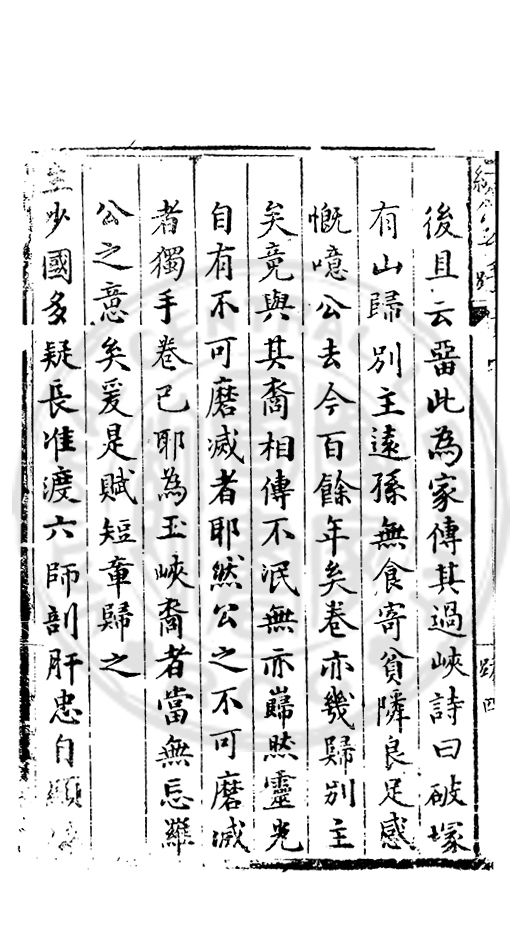 後且云畱此為家傳其過峽詩曰破塚
有山歸别主遠孫無食寄貧隣良足感
慨噫公去今百餘年矣卷亦幾歸别主
矣竟與其裔相傳不泯無亦巋然靈光
自有不可磨滅者耶然公之不可磨滅
者獨手卷已耶為玉峽裔者當無忘雒
公之意矣爰是賦短章歸之
主少國多疑長淮渡六師剖肝忠自顯